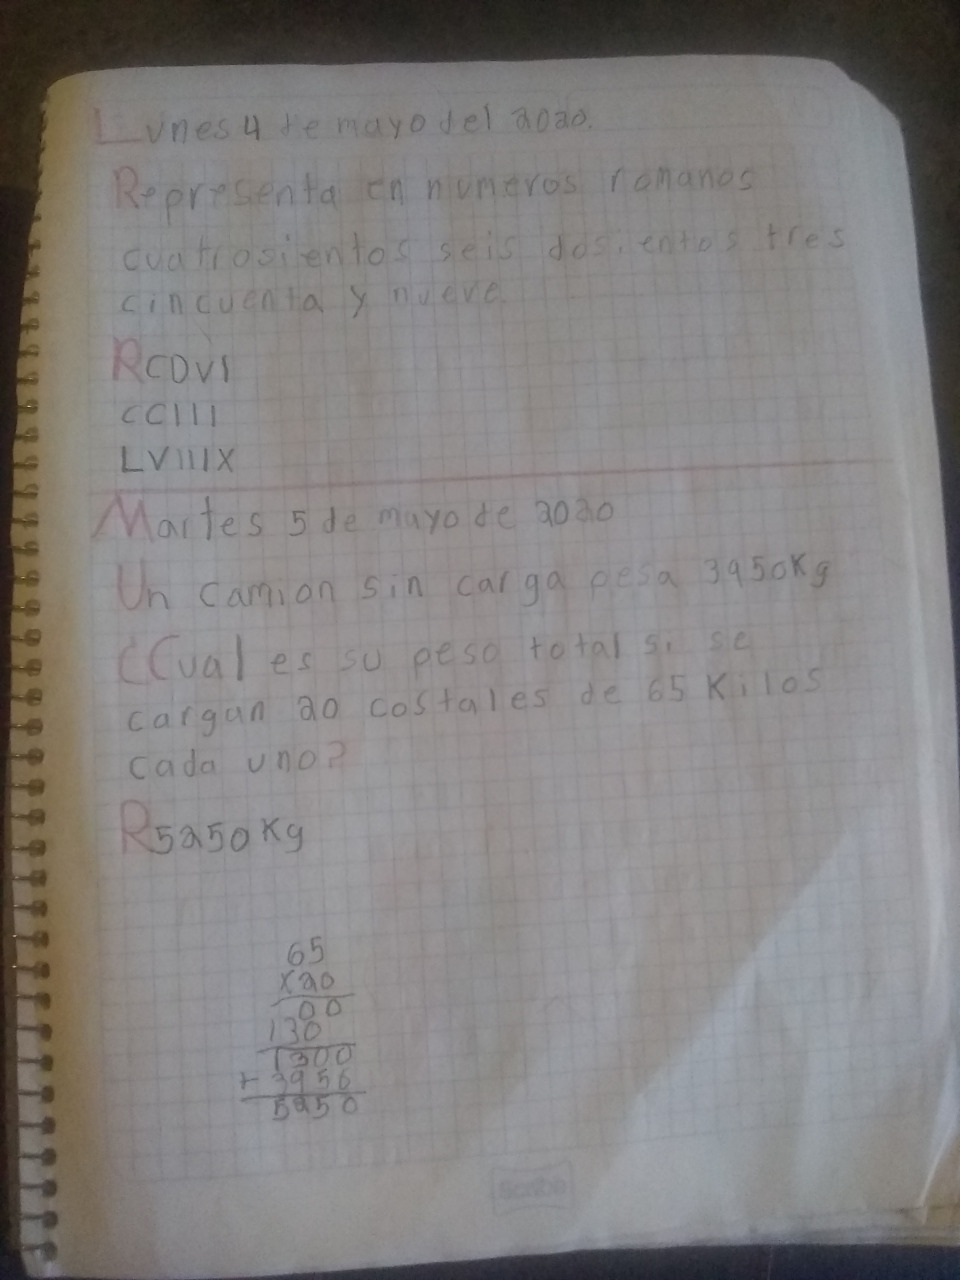 Lunes 4 de mayo del 2020.
Representa en numeros romanos
cuatrosientos seis dosientos tres
cincuenta y nueve.
R CDVI
CCIII
LVIIIX
Martes 5 de mayo de 2020
Un camion sin carga pesa 3950Kg
¿Cual es su peso total si se
cargan 20 costales de 65 Kilos
cada uno?
R 5250Kg
65
x20
00
130
1300
+3950
5250
Scribe